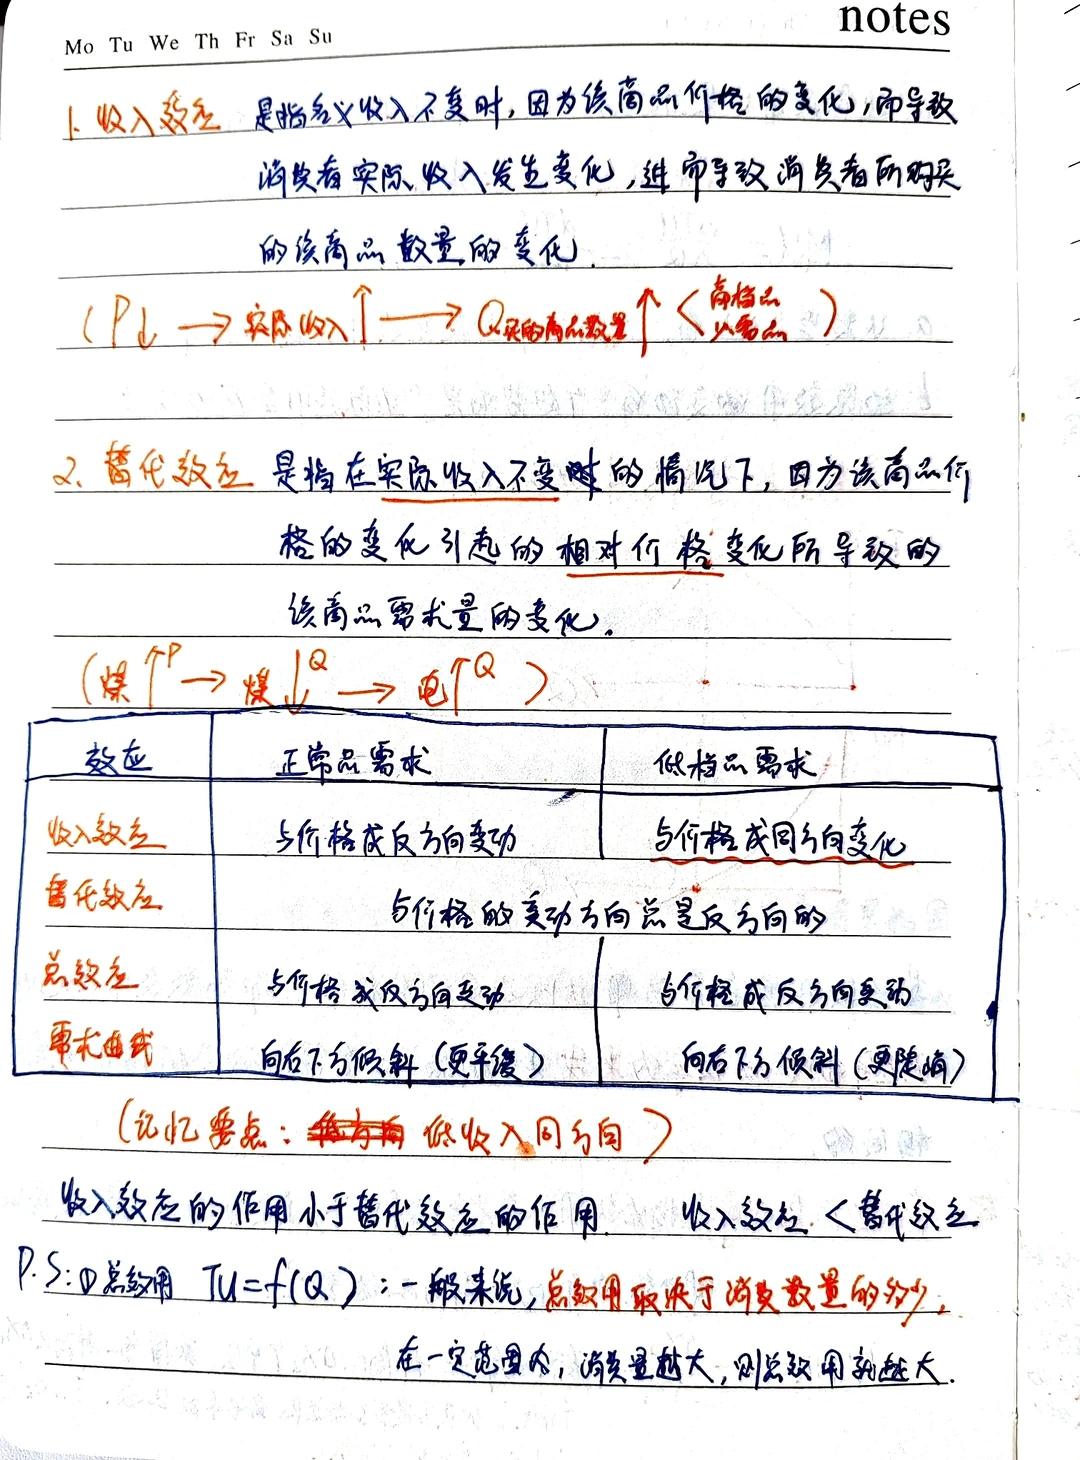 notes
Mo Tu We Th Fr Sa Su
1. 收入效应 是指名义收入不变时，因为该商品价格的变化，而导致
消费者实际收入发生变化，进而导致消费者所购买
的该商品数量的变化.
(P↓ → 实际收入↑ → Q买的商品数量↑ < 高档品
必需品 )
2. 替代效应 是指在实际收入不变时的情况下，因为该商品价
格的变化引起的相对价格变化所导致的
该商品需求量的变化.
(煤↑P → 煤↓Q → 电↑Q )
效应 正常品需求 低档品需求
收入效应 与价格成反方向变动 与价格成同方向变化
替代效应 与价格的变动方向总是反方向的
总效应 与价格成反方向变动 与价格成反方向变动
需求曲线 向右下方倾斜（更平缓） 向右下方倾斜（更陡峭）
（记忆要点： 低收入同方向 ）
收入效应的作用小于替代效应的作用. 收入效应 < 替代效应
P.S: ①总效用 TU=f(Q)：一般来说，总效用取决于消费数量的多少，
在一定范围内，消费量越大，则总效用就越大.